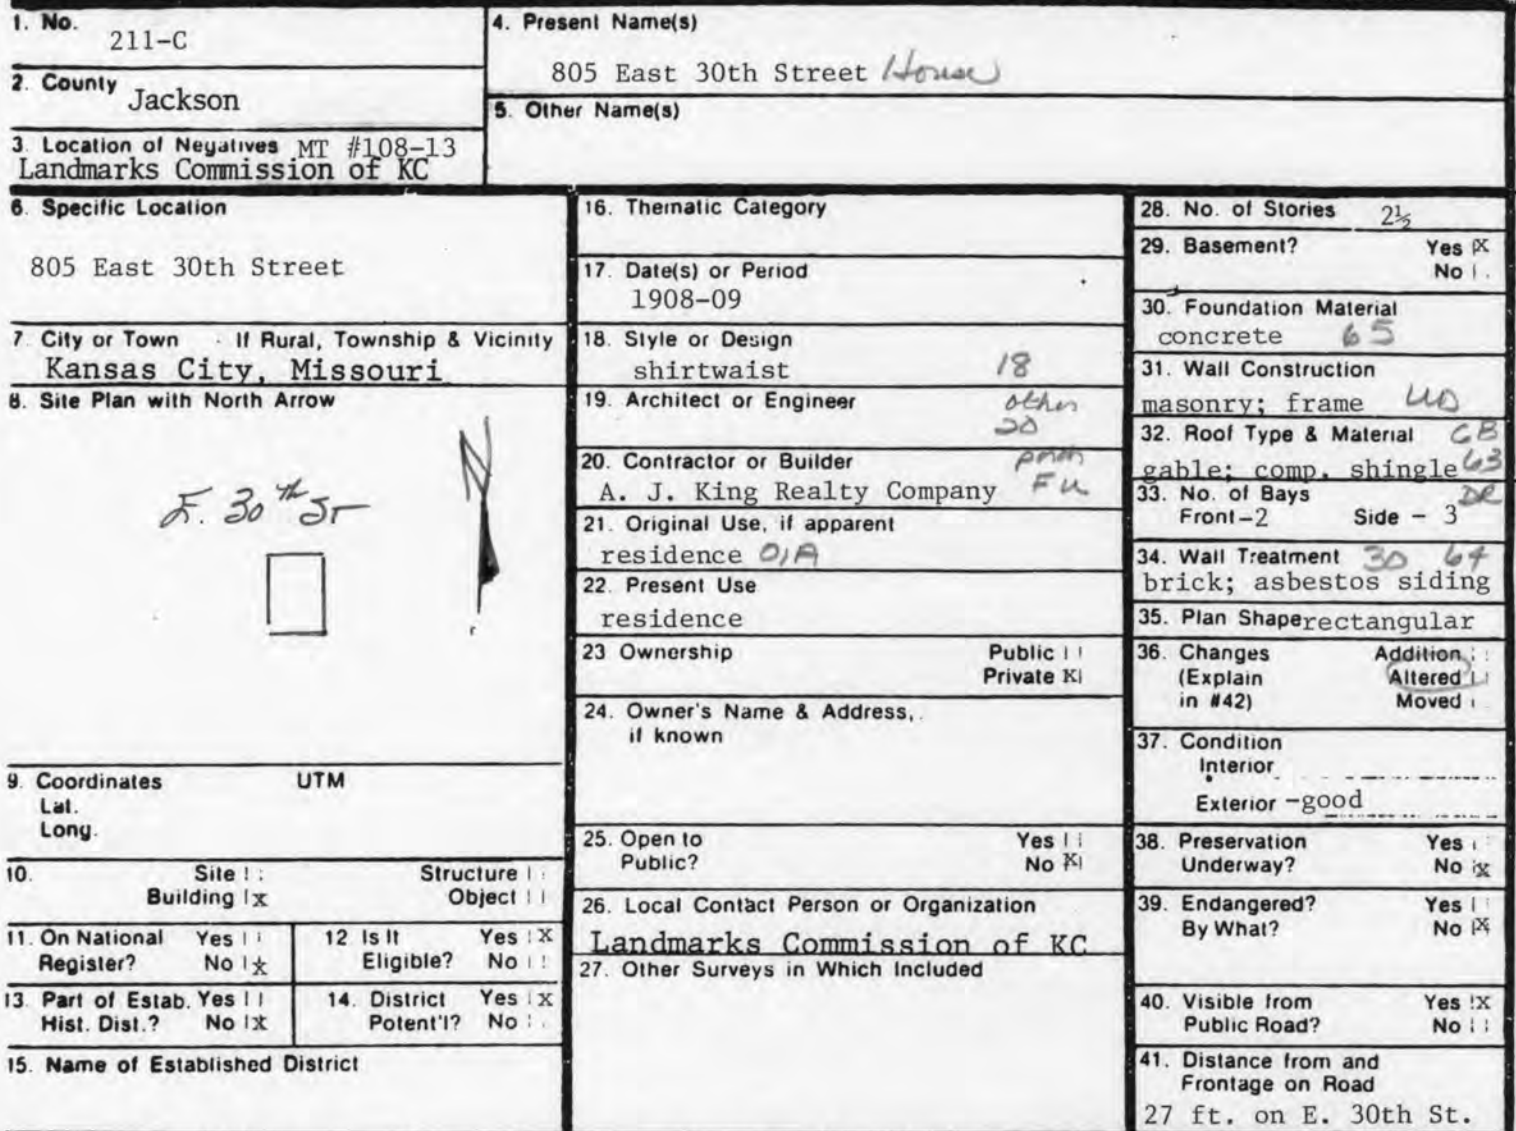 1. No.
211-C
2. County Jackson
3. Location of Negatives MT #108-13
Landmarks Commission of KC
4. Present Name(s)
805 East 30th Street House
5. Other Name(s)
6. Specific Location
805 East 30th Street
7. City or Town If Rural, Township & Vicinity
Kansas City, Missouri
8. Site Plan with North Arrow
N
E. 30th St
9. Coordinates UTM
Lat.
Long.
10. Site Structure
Building x Object
11. On National Yes
Register? No x
12. Is It Yes X
Eligible? No
13. Part of Estab. Yes
Hist. Dist.? No x
14. District Yes x
Potent'l? No
15. Name of Established District
16. Thematic Category
17. Date(s) or Period
1908-09
18. Style or Design
shirtwaist 18
19. Architect or Engineer other
20
20. Contractor or Builder porch
A. J. King Realty Company Fu
21. Original Use, if apparent
residence 01A
22. Present Use
residence
23 Ownership Public
Private X
24. Owner's Name & Address,
if known
25. Open to Yes
Public? No X
26. Local Contact Person or Organization
Landmarks Commission of KC
27. Other Surveys in Which Included
28. No. of Stories 2½
29. Basement? Yes X
No
30. Foundation Material
concrete 65
31. Wall Construction
masonry; frame UD
32. Roof Type & Material GB
gable; comp. shingle 63
33. No. of Bays DR
Front-2 Side - 3
34. Wall Treatment 30 64
brick; asbestos siding
35. Plan Shape rectangular
36. Changes Addition
(Explain Altered
in #42) Moved
37. Condition
Interior
Exterior -good
38. Preservation Yes
Underway? No x
39. Endangered? Yes
By What? No X
40. Visible from Yes X
Public Road? No
41. Distance from and
Frontage on Road
27 ft. on E. 30th St.